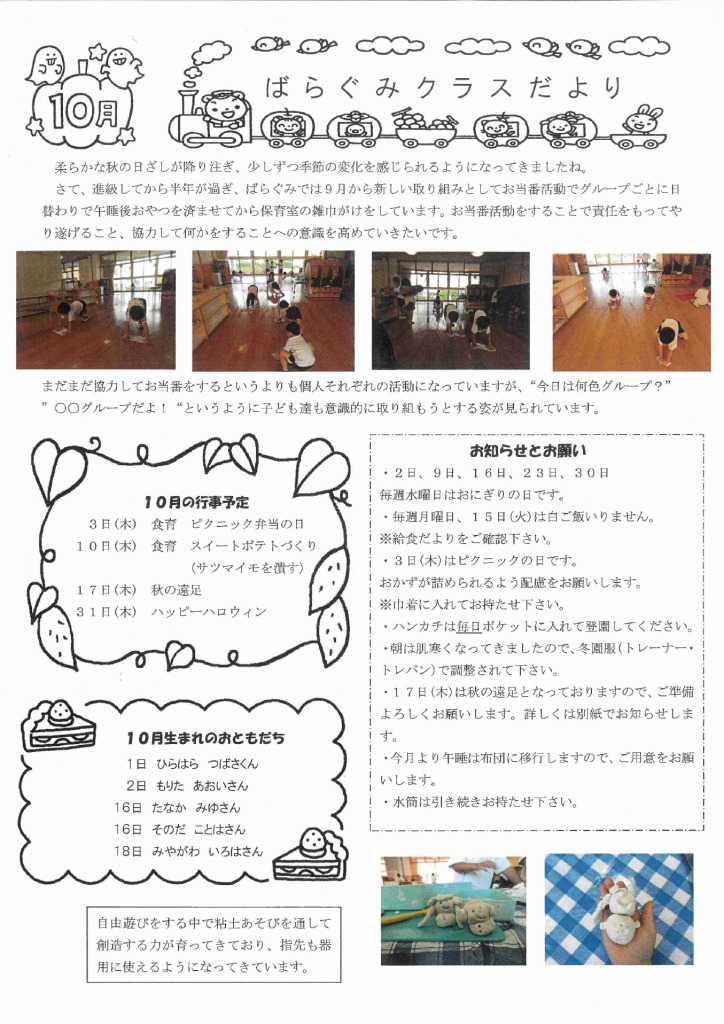 10月
ばらぐみクラスだより
柔らかな秋の日ざしが降り注ぎ、少しずつ季節の変化を感じられるようになってきましたね。
さて、進級してから半年が過ぎ、ばらぐみでは９月から新しい取り組みとしてお当番活動でグループごとに日
替わりで午睡後おやつを済ませてから保育室の雑巾がけをしています。お当番活動をすることで責任をもってや
り遂げること、協力して何かをすることへの意識を高めていきたいです。
まだまだ協力してお当番をするというよりも個人それぞれの活動になっていますが、“今日は何色グループ？”
”〇〇グループだよ！“というように子ども達も意識的に取り組もうとする姿が見られています。
１０月の行事予定
３日(木)　食育　ピクニック弁当の日
１０日(木)　食育　スイートポテトづくり
(サツマイモを潰す)
１７日(木)　秋の遠足
３１日(木)　ハッピーハロウィン
１０月生まれのおともだち
1日　ひらはら　つばさくん
2日　もりた　あおいさん
16日　たなか　みゆさん
16日　そのだ　ことはさん
18日　みやがわ　いろはさん
自由遊びをする中で粘土あそびを通して
創造する力が育ってきており、指先も器
用に使えるようになってきています。
お知らせとお願い
・２日、９日、１６日、２３日、３０日
毎週水曜日はおにぎりの日です。
・毎週月曜日、１５日(火)は白ご飯いりません。
※給食だよりをご確認下さい。
・３日(木)はピクニックの日です。
おかずが詰められるよう配慮をお願いします。
※巾着に入れてお持たせ下さい。
・ハンカチは毎日ポケットに入れて登園してください。
・朝は肌寒くなってきましたので、冬園服(トレーナー・
トレパン)で調整されて下さい。
・１７日(木)は秋の遠足となっておりますので、ご準備
よろしくお願いします。詳しくは別紙でお知らせしま
す。
・今月より午睡は布団に移行しますので、ご用意をお願
いします。
・水筒は引き続きお持たせ下さい。